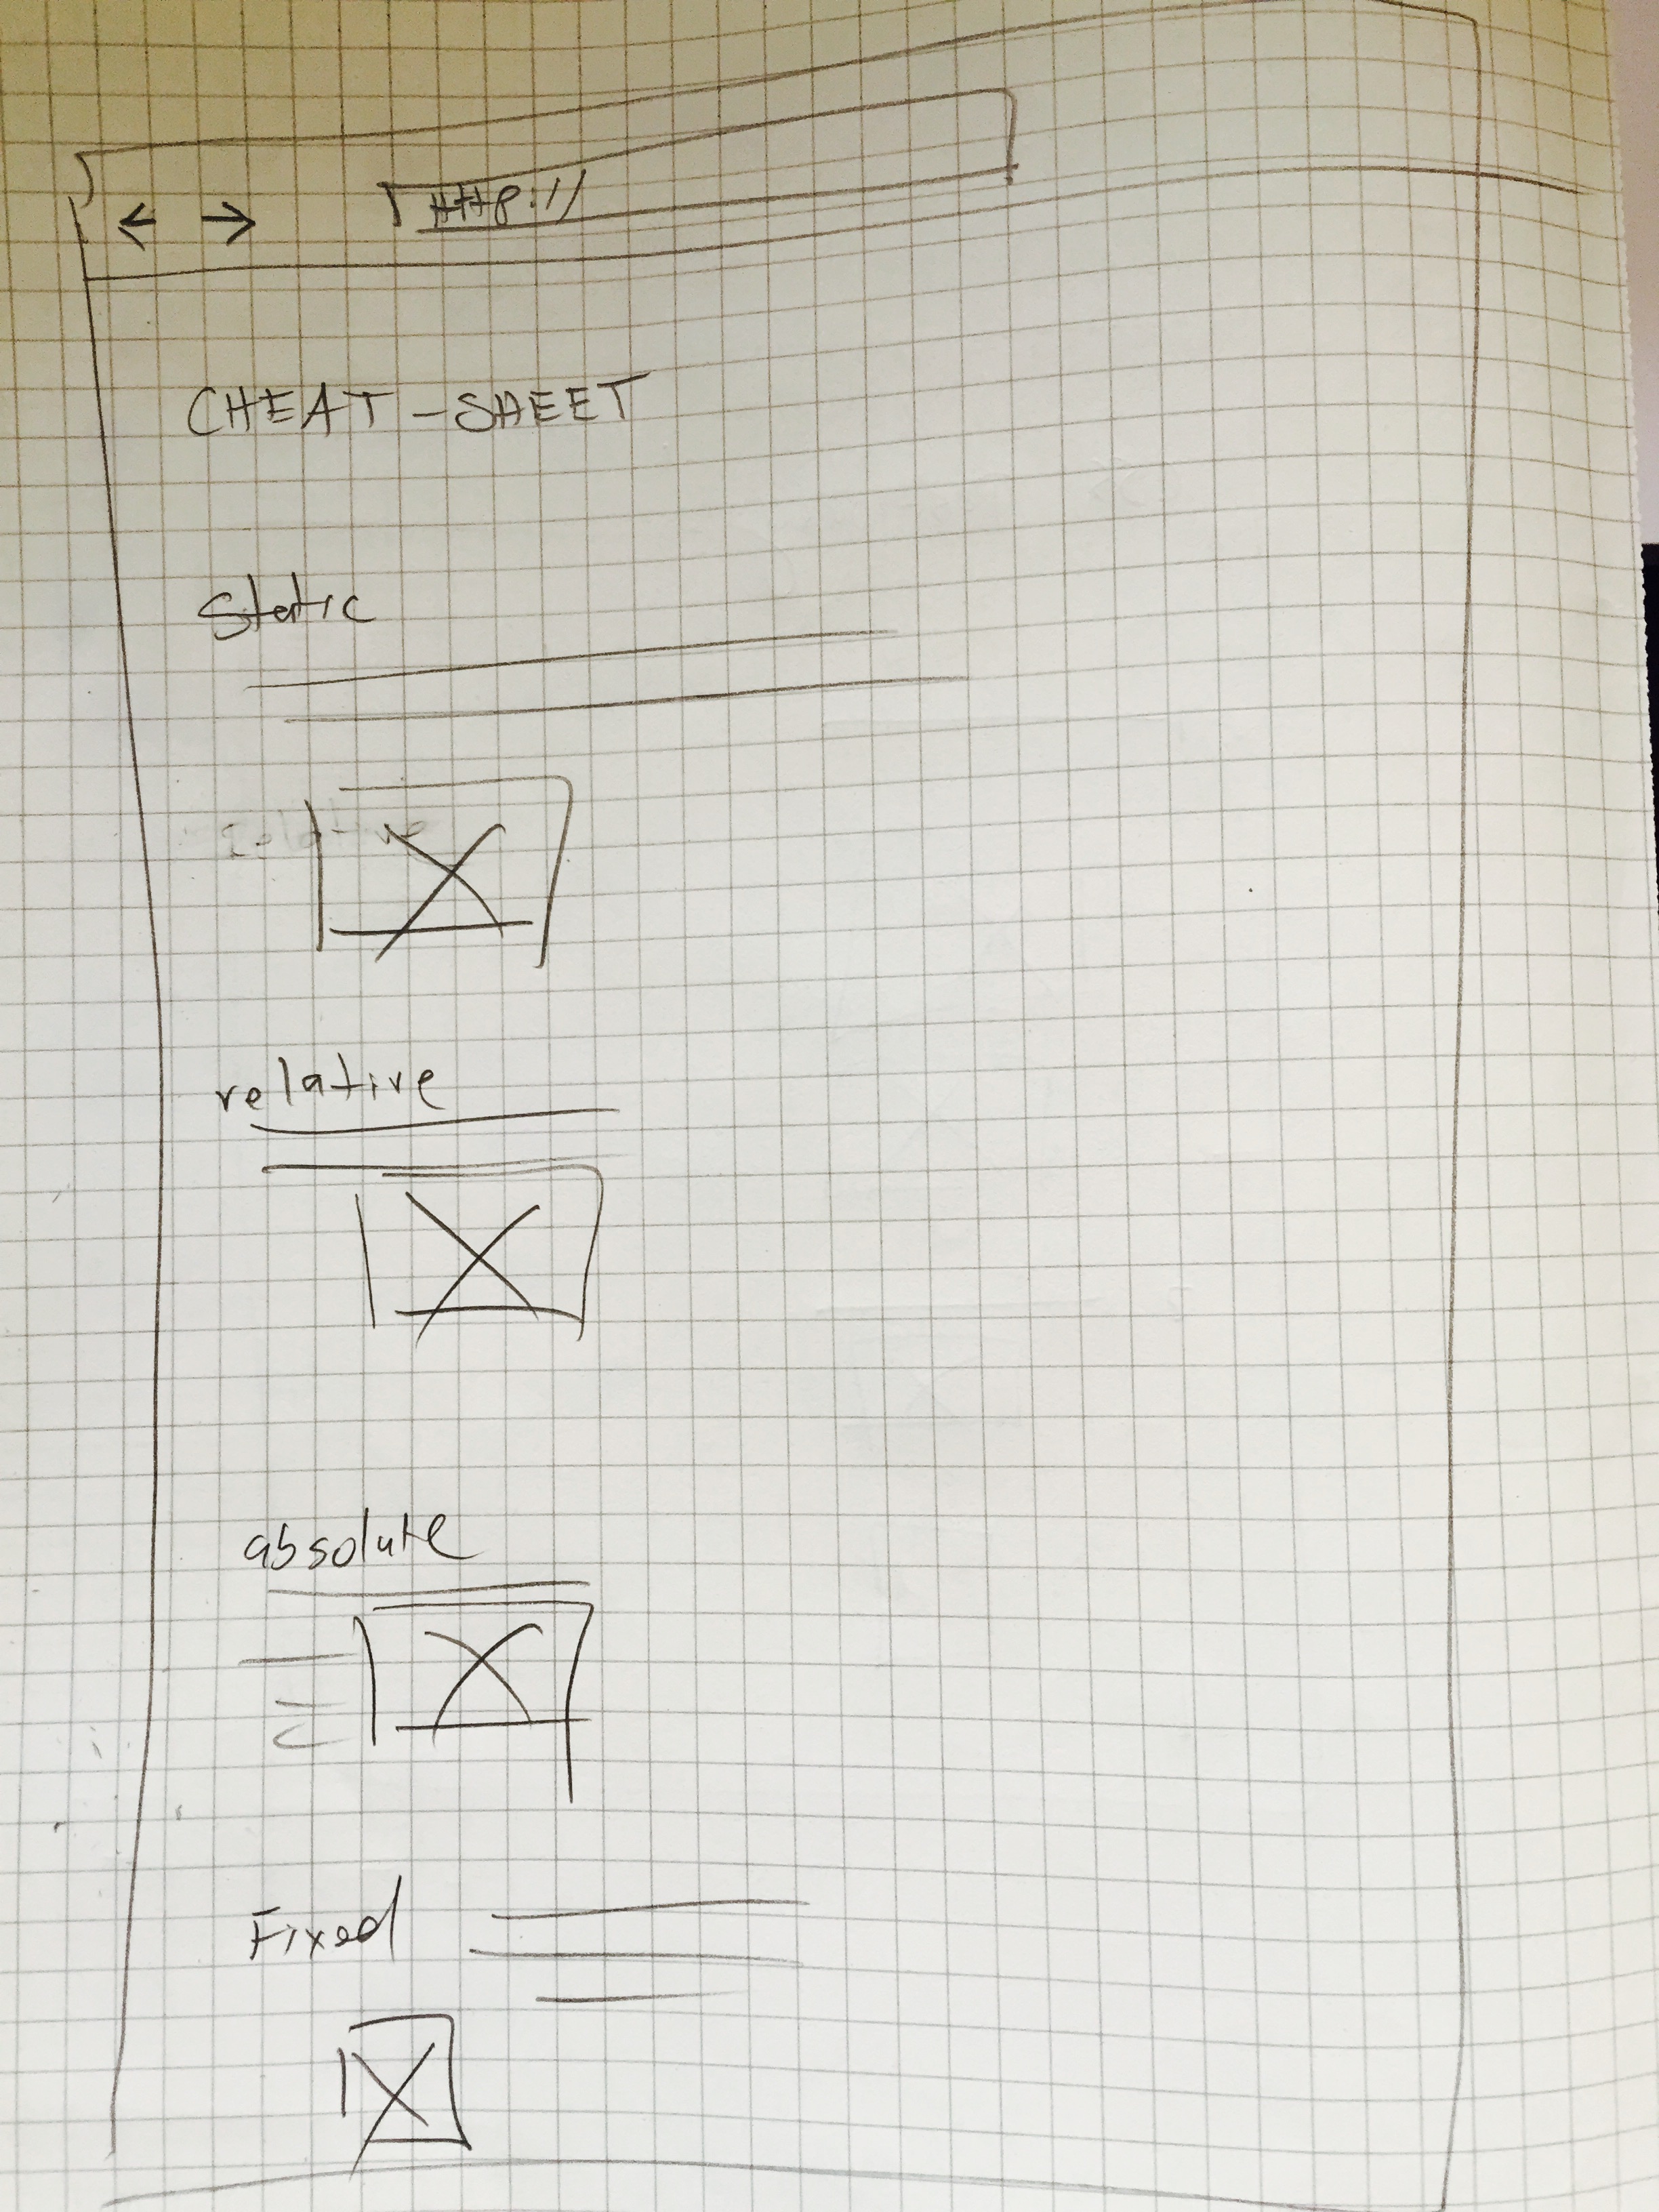 ← →
HTTP://
CHEAT-SHEET
Static
relative
relative
absolute
Fixed